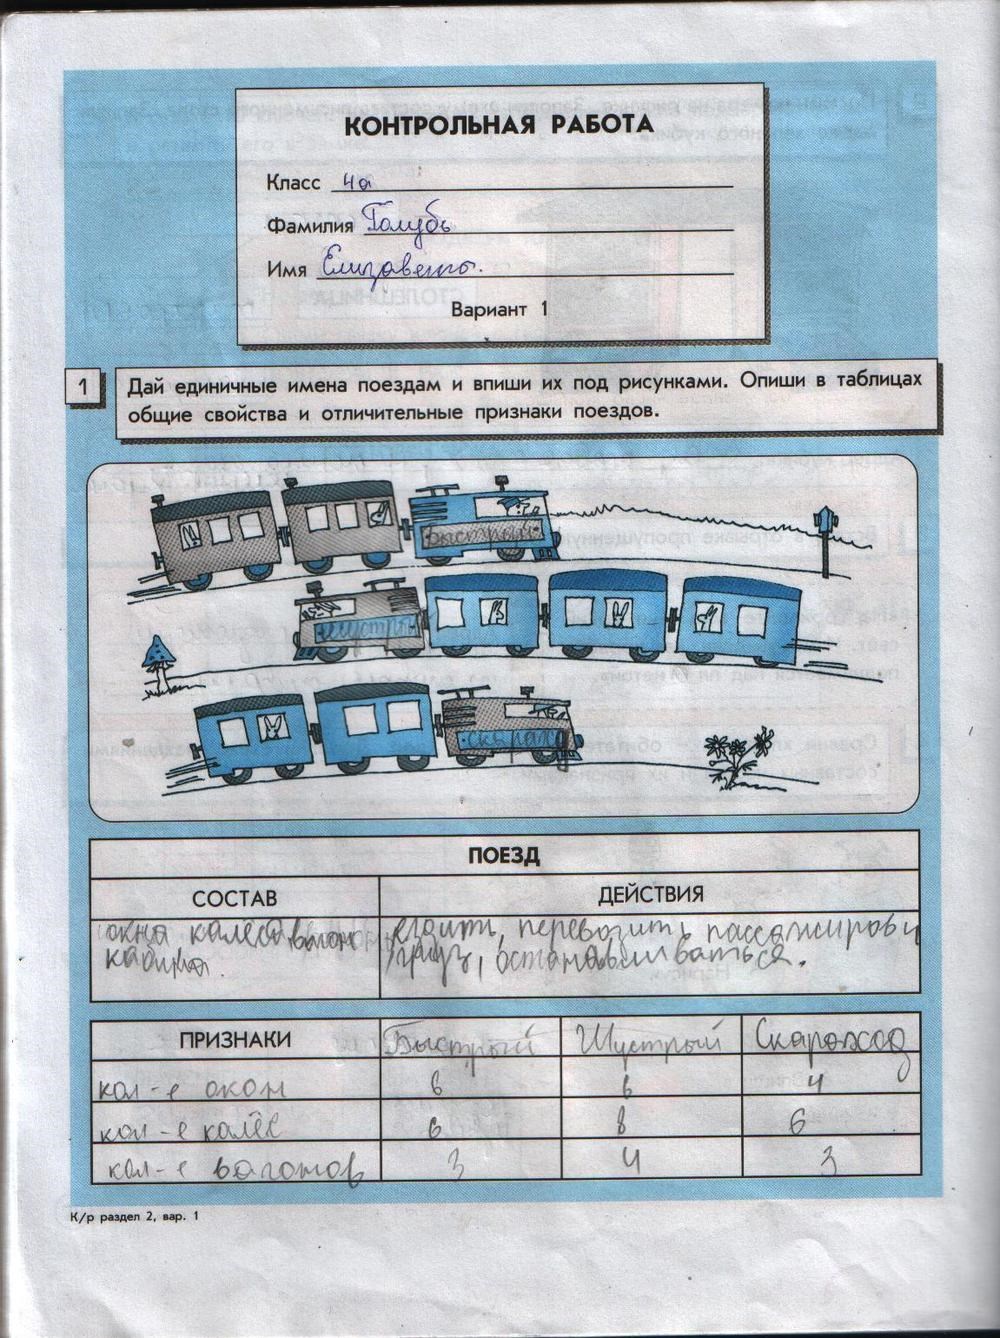 КОНТРОЛЬНАЯ РАБОТА
Класс 4а
Фамилия Голубь
Имя Елизавета.
Вариант 1
1
Дай единичные имена поездам и впиши их под рисунками. Опиши в таблицах
общие свойства и отличительные признаки поездов.
быстрый
шустрый
скараход
ПОЕЗД
СОСТАВ ДЕЙСТВИЯ
окна колёса вагон ездить, перевозить пассажиров и
кабина. груз, останавливаться.
ПРИЗНАКИ Быстрый Шустрый Скараход
кол-е окон 6 6 4
кол-е калёс 6 8 6
кол-е вагонов 3 4 3
К/р раздел 2, вар. 1